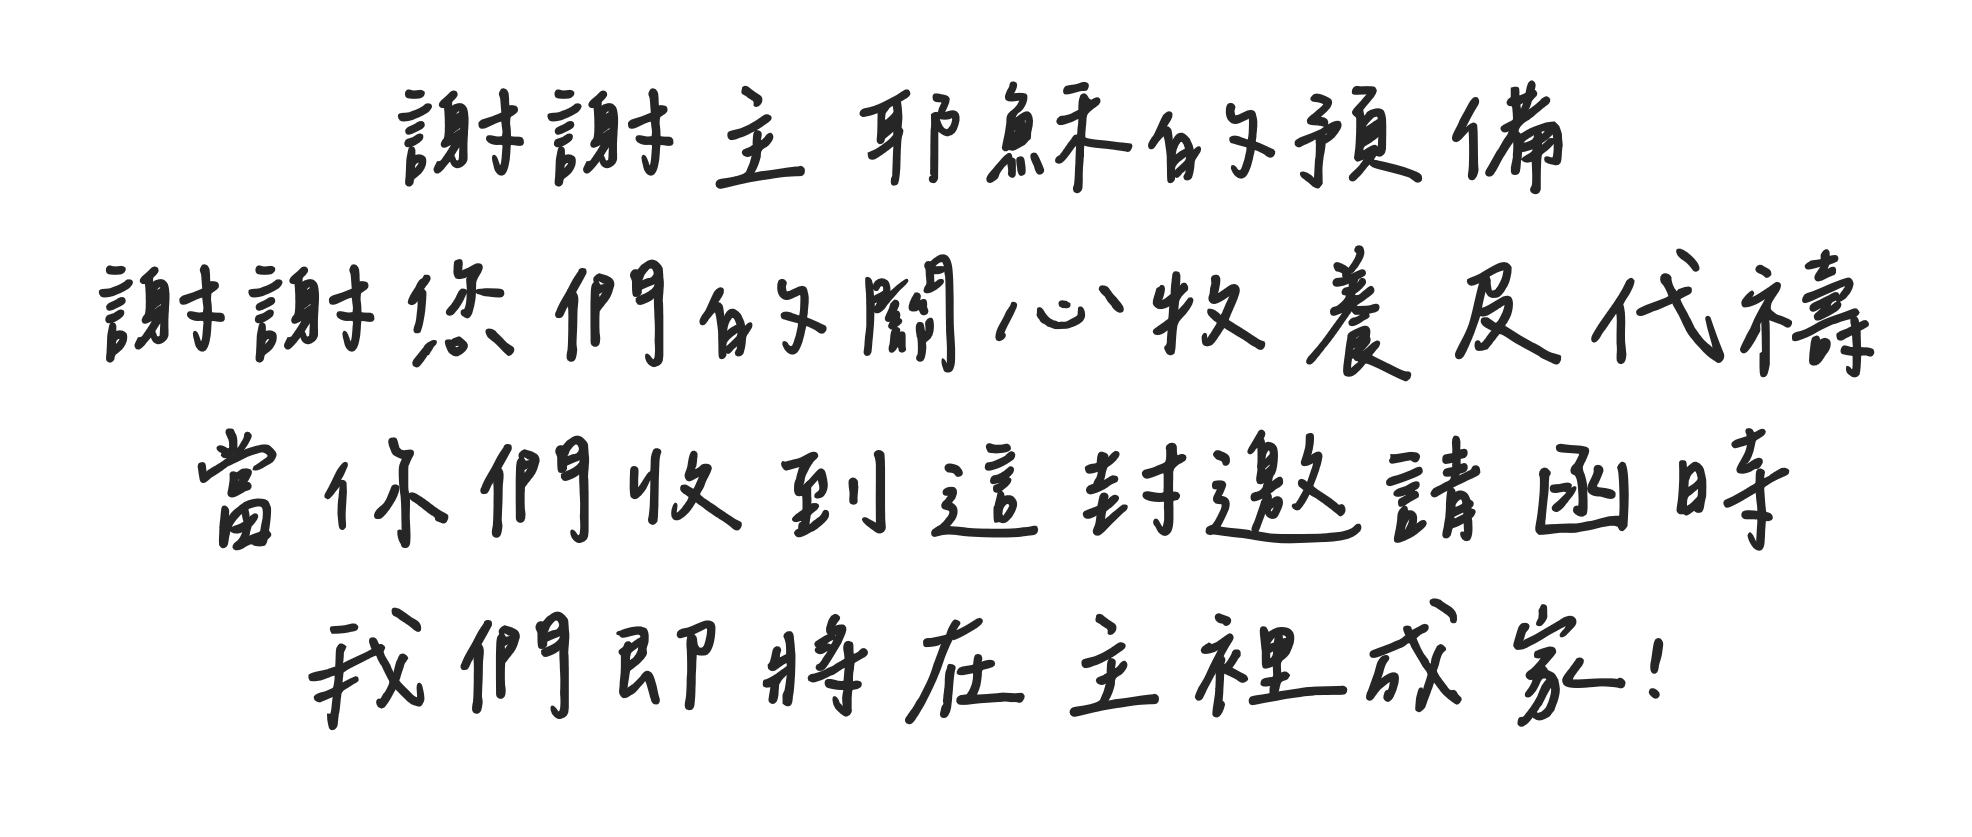 謝謝主耶穌的預備
謝謝您們的關心牧養及代禱
當你們收到這封邀請函時
我們即將在主裡成家!